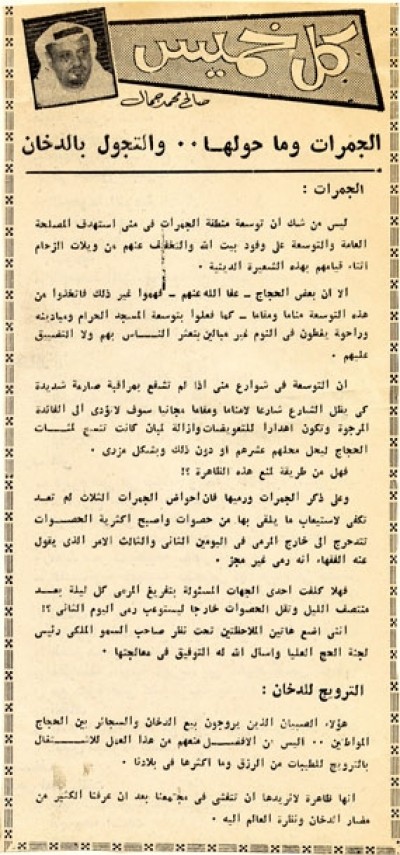 كل خميس
صالح محمد جمال
الجمرات وما حولها ٠٠ والتجول بالدخان
الجمرات :
ليس من شك أن توسعة منطقة الجمرات فى منى استهدف المصلحة
العامة والتوسعة على وفود بيت الله والتخفيف عنهم من ويلات الزحام
اثناء قيامهم بهذه الشعيرة الدينية ٠
الا ان بعض الحجاج ــ عفا الله عنهم ــ فهموا غير ذلك فاتخذوا من
هذه التوسعة مناما ومقاما ــ كما فعلوا بتوسعة المسجد الحرام وميادينه
وراحوا يغطون فى النوم غير مبالين بتعثر النــاس بهم ولا التضييق
عليهم ٠
ان التوسعة فى شوارع منى اذا لم تشفع بمراقبة صارمة شديدة
كى يظل الشارع شارعا لامناما ومقاما مجانيا سوف لاتؤدى الى الفائدة
المرجوة وتكون اهدارا للتعويضات وازالة لمبان كانت تتسع لمئــات
الحجاج ليحل محلهم عشرهم او دون ذلك وبشكل مزرى ٠
فهل من طريقة لمنع هذه الظاهرة ؟!
وعلى ذكر الجمرات ورميها فان احواض الجمرات الثلاث لم تعــد
تكفى لاستيعاب ما يلقى بها من حصوات واصبح اكثرية الحصــوات
تتدحرج الى خارج المرمى فى اليومين الثانى والثالث الامر الذى يقول
عنه الفقهاء أنه رمى غير مجز ٠
فهلا كلفت احدى الجهات المسئولة بتفريغ المرمى كل ليلة بعــد
منتصف الليل ونقل الحصوات خارجا ليستوعب رمى اليوم الثانى ؟!
اننى اضع هاتين الملاحظتين تحت نظر صاحب السمو الملكى رئيس
لجنة الحج العليا واسأل الله له التوفيق فى معالجتها ٠
الترويج للدخان :
هؤلاء الصبيان الذين يروجون بيع الدخان والسجائر بين الحجاج
المواطنين ٠٠ اليس من الافضــل منعهم من هذا العمل للاشــتغال
بالترويج للطيبات من الرزق وما اكثرها فى بلادنا ٠
انها ظاهرة لانريدها أن تتفشى فى مجتمعنا بعد ان عرفنا الكثير من
مضار الدخان ونظرة العالم اليه ٠